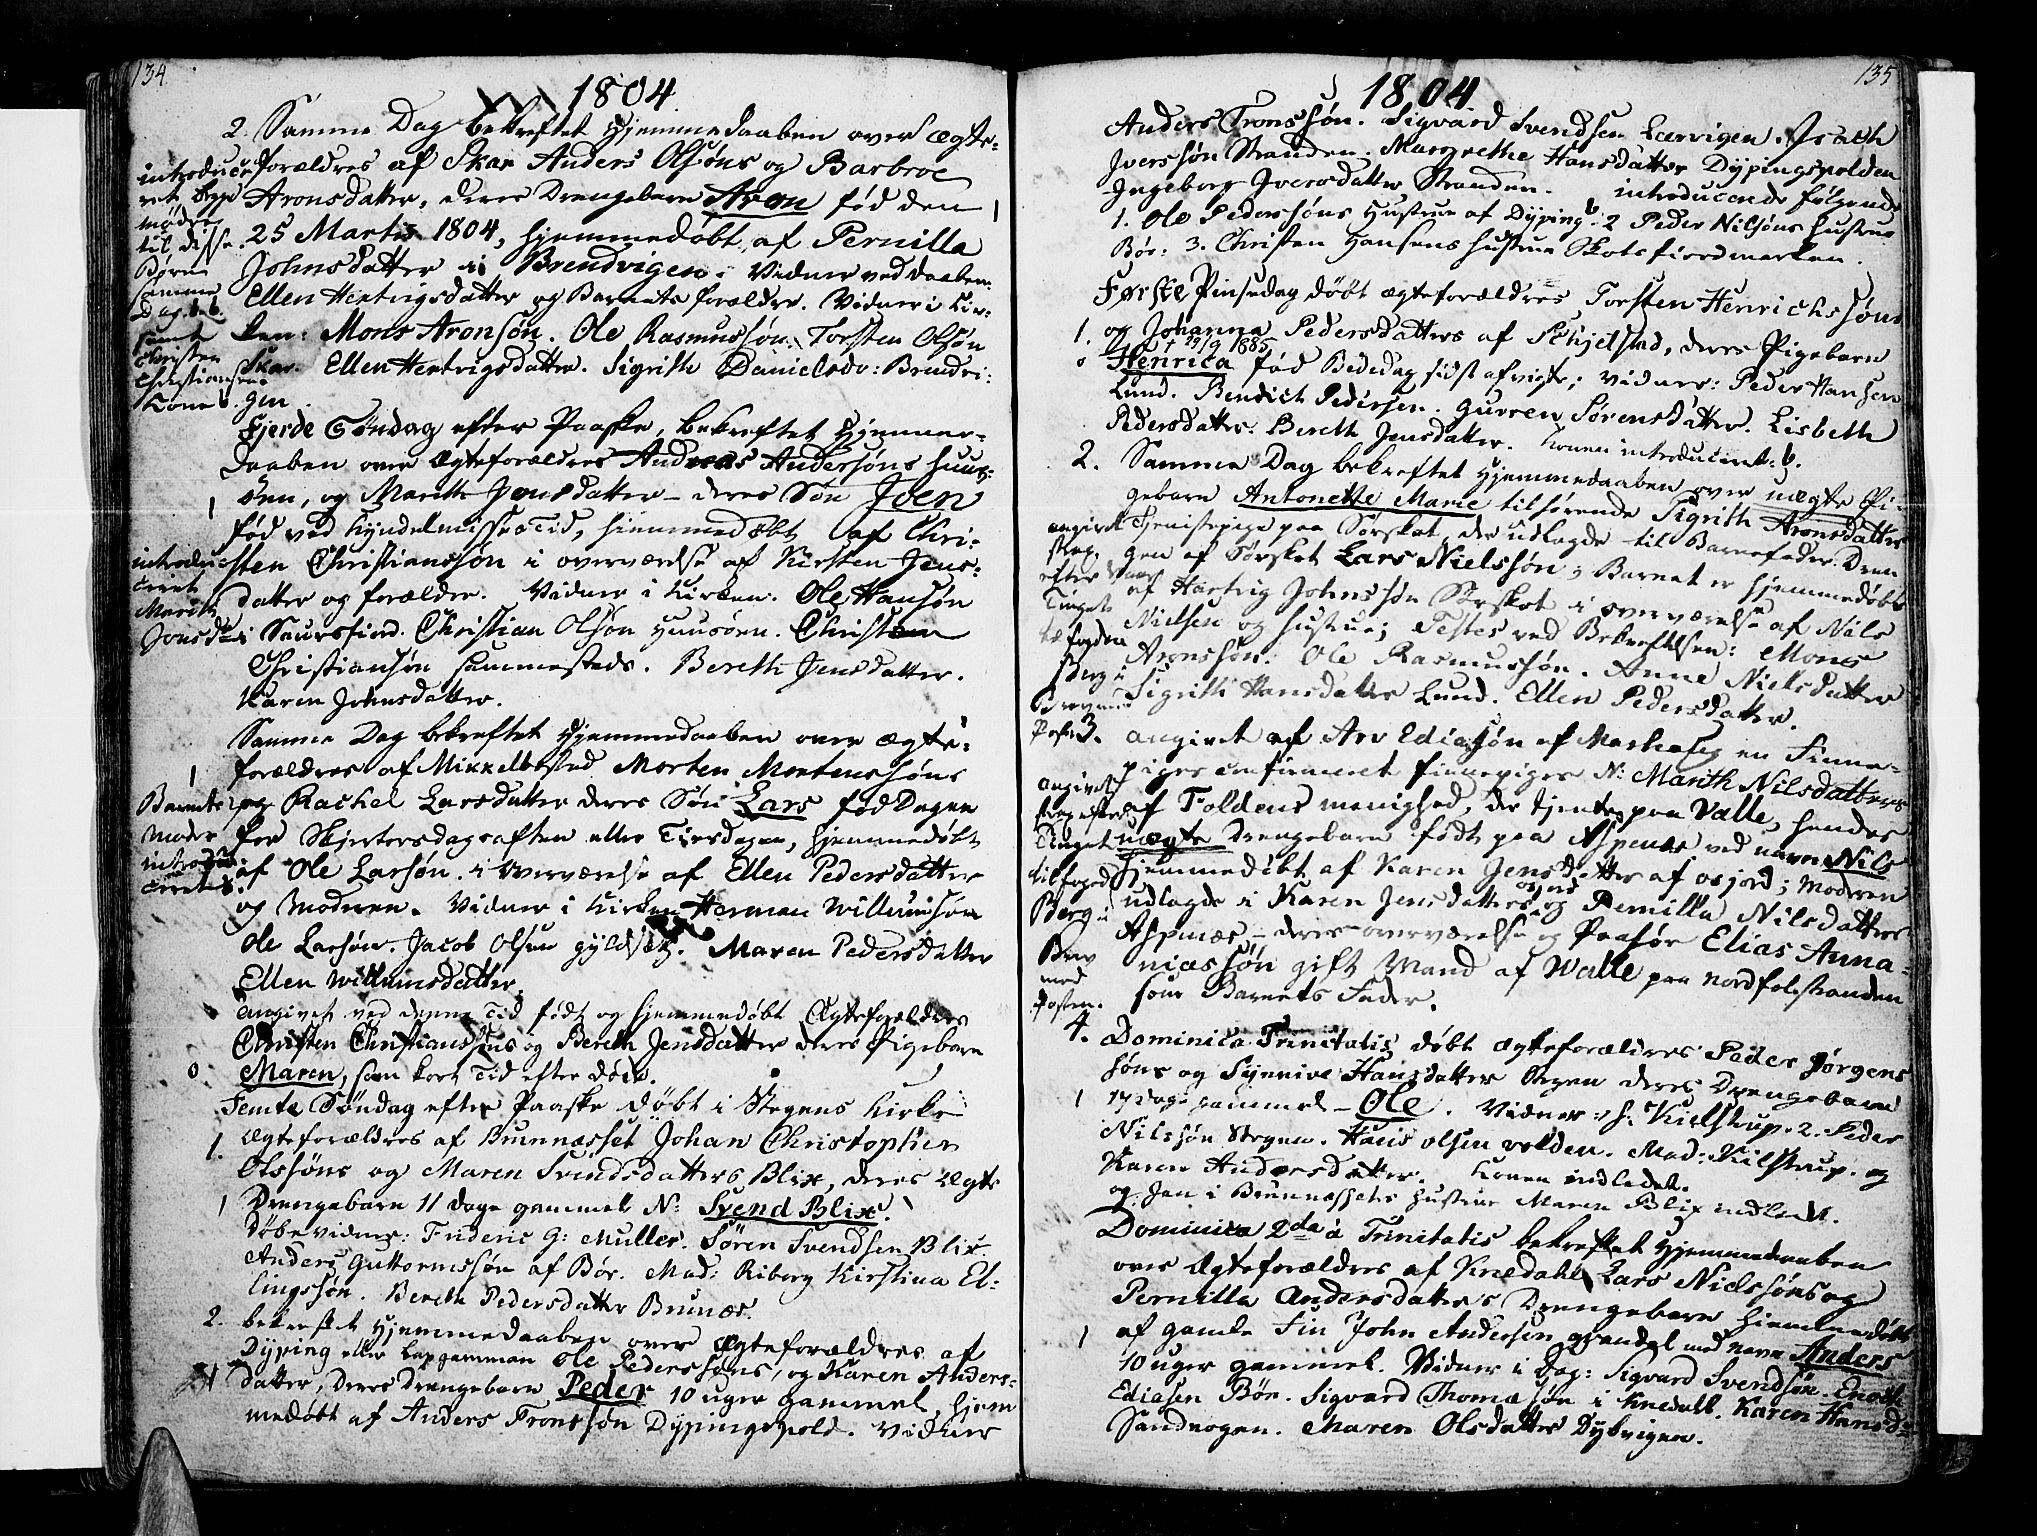 134
1804
2. Samme Dag bekreftet Hjemmedaaben over Ægte-
forældres af Skar Anders Olsøns og Barbroe
Aronsdatter, deres Drengebarn Aron fød den
25 Martis 1804, hjemmedøbt af Pernilla
Johnsdatter i Brendvigen. Vidner ved daaben:
Ellen Hertvigsdatter og Barnets forældre. Vidner i Kir-
ken: Mons Aronsøn. Ole Rasmussøn. Torsten Olsøn
Skar. Ellen Hertvigsdatter. Sigrith Danielsdr: Brendvi-
gen.
introduce-
ret
mødre
til disse
Børn
samme
Dag
samt
Christen
Christiansens
Kone
Fjerde Søndag efter Paaske, bekreftet Hjemme-
daaben over Ægteforældres Andreas Andersøns Huus-
øen, og Marith Jonsdatter – deres Søn Joen
fød ved Kyndelmisses Tid, hiemmedøbt af Chri-
sten Christianssøn i overværelse af Kirsten Jens-
datter og forældre. Vidner i Kirken. Ole Hansøn
i Saursfiord. Christian Olsøn Huusøen. Christen
Christiansøn sammesteds. Bereth Jensdatter.
Karen Johnsdatter.
1
introdu-
ceret
Marith
Jonsdr
Samme Dag bekreftet Hjemmedaaben over Ægte-
forældres af Mikkelbostad Morten Mortenssøns
og Rachel Larsdatter deres Søn Lars fød Dagen
for Skjertorsdagsaften eller Tirsdagen, hjemmedøbt
af Ole Larsøn. i Overværelse af Ellen Pedersdatter
og Moderen. Vidner i Kirken Herman Willumsøn
Ole Larsøn. Jacob Olsen Gyldset. Maren Pedersdatter
Ellen Willumsdatter.
1
Barnets
Moder
introdu-
ceret
angivet ved denne Tid født og hjemmedøbt Ægteforældres
Christen Christianssøns og Bereth Jensdatter deres Pigebarn
0 Maren, som kort Tid efter døde.
Femte Søndag efter Paaske døbt i Stegens Kirke
1. Ægteforældres af Brunnæsset Johan Christopher
Olssøns og Maren Svendsdatters Blix, deres Ægte
1 Drengebarn 11 dage gammel N: Svend Blix.
Døbevidner: Frideric G: Muller. Søren Svendsen Blix.
Anders Guttormssøn af Bør. Mad: Riborg Kirstina El-
lingssøn. Bereth Pedersdatter Brunæs.
2. bekreftet Hjemmedaaben over Ægteforældres af
Dyping eller Lapgamman Ole Pederssøns, og Karen Anders-
1 datter, deres Drengebarn Peder 10 uger gammel, hjem
medøbt af Anders Tronssøn Dypingspold. Vidner
135
1804
Anders Tronssøn. Sigvard Svendsen Leervigen. Isach
Iverssøn Stranden. Margrethe Hansdatter Dypingspolden
Ingeborg Iversdatter Stranden. introducerede følgende
1. Ole Pederssøns Hustrue af Dyping. 2 Peder Nilsøns Hustrue
Bør: 3. Christen Hansens hustrue Skotsfiordmarken.
Første Pinsedag døbt ægteforældres Torsten Henrichssøns
1. og Johanna Pedersdatters af Schjelstad, deres Pigebarn
† 29/9 1885
0 Henrica fød Bededag sidst afvigte; Vidner: Peder Hansen
Lund. Bendict Pedersen. Gurren Sørensdatter. Lisbeth
Pedersdatter. Bereth Jensdatter. Konen introduceret.
2. Samme Dag bekreftet Hjemmedaaben over uægte Pi-
gebarn Antonette Marie tilhørende Sigrith Aronsdatter
Tjenistepige paa Sørskot, der udlagde til Barnefader Dren
gen af Sørskot Lars Nielssøn; Barnet er hjemmedøbt
af Hartvig Johnssøn Sørskot i overværelse af Nils
Nielsen og hustrue; Testes ved Bekreftelsen: Mons
Aronssøn. Ole Rasmussøn. Anne Nielsdatter
Sigrith Hansdatter Lund. Ellen Pedersdatter.
angivet
strax
efter
Tinget
til fogden
Berg i
Brev med
Posten
3. angivet af Arv Ediasøn af Markaseg en Finne-
piges confirmeret finnepiges N: Marith Nilsdatters
af Foldens menighed, der tjente paa Valle, hendes
uægte Drengebarn født paa Aspenæs ved navn Nils
hjemmedøbt af Karen Jensdatter af osjord; Moderen
udlagde i Karen Jensdatters osjord og Pernilla Nilsdatters
Aspenæs – deres overværelse og Paahør Elias Anna-
niassøn gift Mand af Walle paa Nordfolestranden
som Barnets Fader.
angivet
strax efter
Tinget
til foged
Berg i
Brev
med
Posten.
4. Dominica Trinitatis døbt ægteforældres Peder Jørgens
søns og Synnive Hansdatter Stegen deres Drengebarn
1 17 dage gammel – Ole. Vidner: H. Kielstrup. 2. Peder
Nilssøn Stegen. Hans Olsen Volden. Mad: Kielstrup. og
Karen Andersdatter. Konen indledet.
og Jen i Brunnæssets hustrue Maren Blix indledet.
Dominica 2da à Trinitatis bekreftet Hjemmedaaben
over Ægteforældres af Knedahl Lars Nielssøns og
Pernilla Andersdatters Drengebarn hjemmedøbt
1 af gamle Fin John Andersen Grandal med navn Anders
10 uger gammel. Vidner i Dag: Sigvard Svendsøn. Enoch
Ediasen Bør. Sigvard Thomæsøn i Knedahl. Karen Hansd-
Sandnogen. Maren Olsdatter Dybvigen.